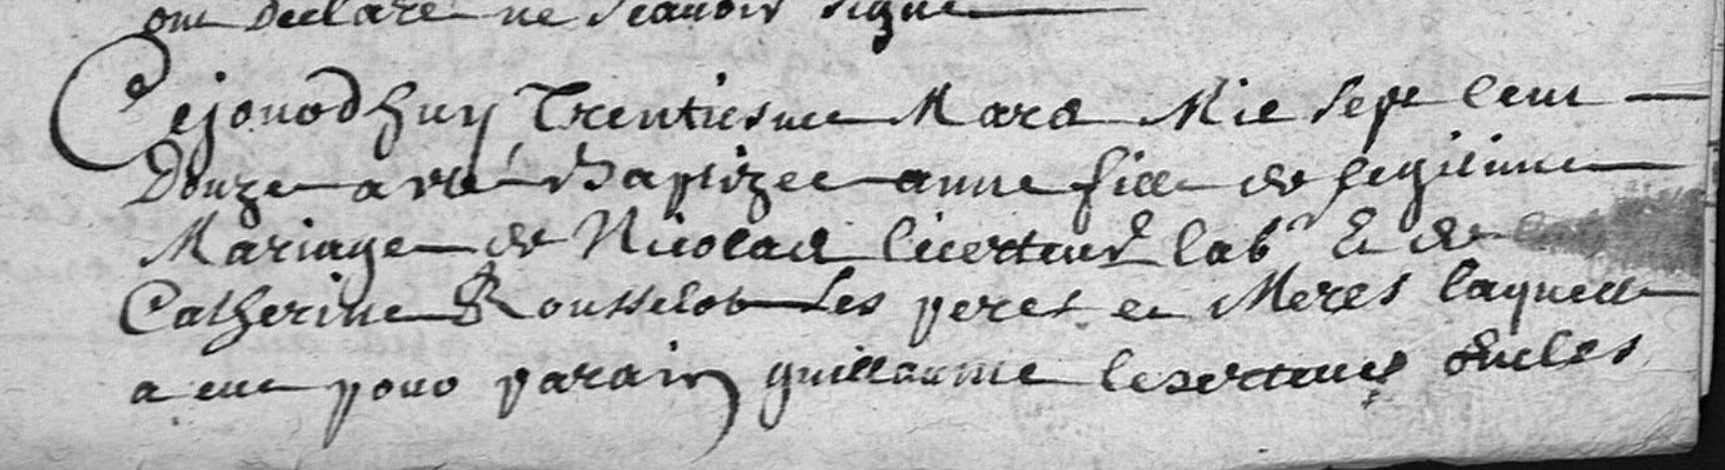 ont declare ne scauoir signe
Cejourdhuy Trentiesme Mars Mil sept Cent
Douze a esté Baptizee anne fille de legitime
Mariage de Nicolas lab^r & de
Catherine Rousselot ses peres et Meres laquelle
a eue pour parain guillaume oncles